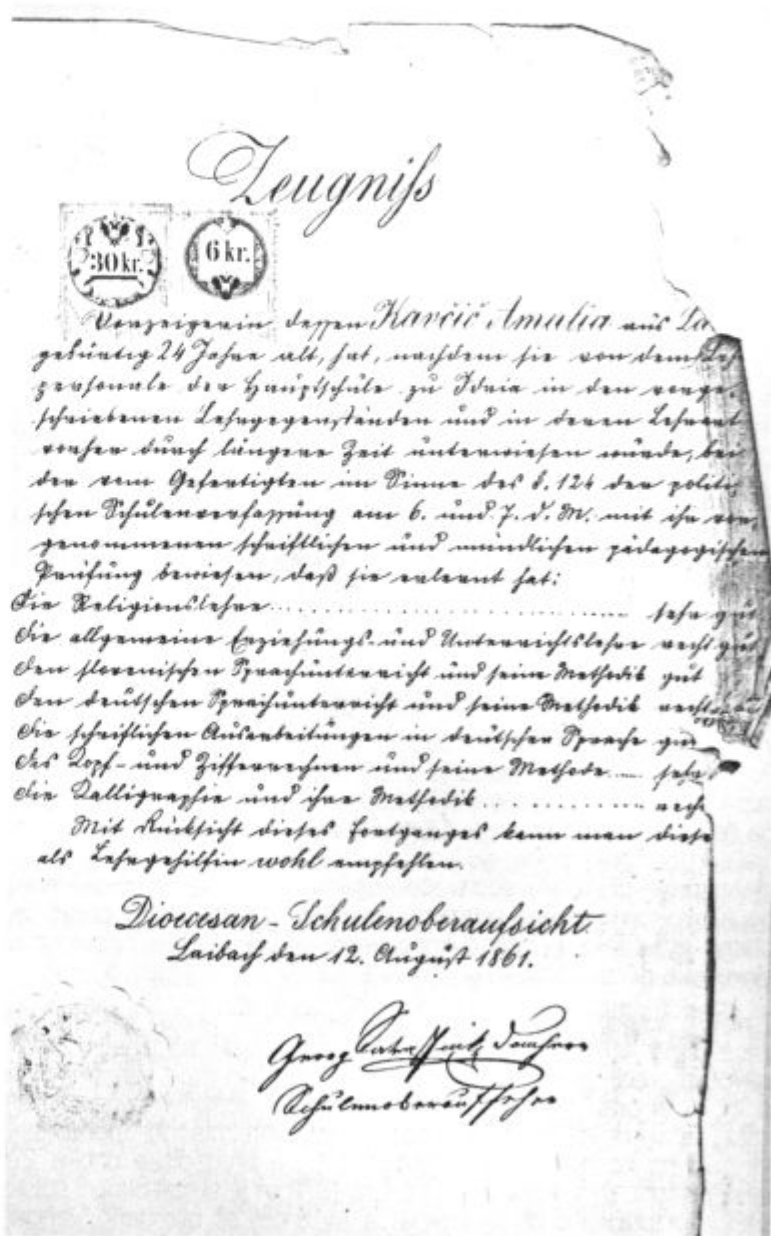 Zeugniſs
30 kr.
6 kr.
Vorzeigerin deſſen Karčič Amalia aus
gebürtig 24 Jahre alt, hat, nachdem sie von dem
personale der Hauptschule zu Idria in den vorge-
schriebenen Lehrgegenständen und in deren Lehrart
vorher durch längere Zeit unterwiesen wurde, bei
der vom Gefertigten im Sinne des §. 124 der politi-
schen Schulenverfaſſung am 6. und 7. d. M. mit ihr vor-
genommenen schriftlichen und mündlichen pädagogischen
Prüfung bewiesen, daß sie erlernt hat:
die Religionslehre .......................... sehr gut
die allgemeine Erziehungs- und Unterrichtslehre recht gut
den slovenischen Sprachunterricht und seine Methodik gut
den deutschen Sprachunterricht und seine Methodik recht
die schriftlichen Ausarbeitungen in deutscher Sprache gut
das Kopf- und Zifferrechnen und seine Methode .... sehr
die Kalligraphie und ihre Methodik ............ rech
Mit Rücksicht dieses Fortganges kann man diese
als Lehrgehilfin wohl empfehlen.
Dioecesan - Schulenoberaufsicht
Laibach den 12. August 1861.
Georg Domherr
Schulenoberaufseher